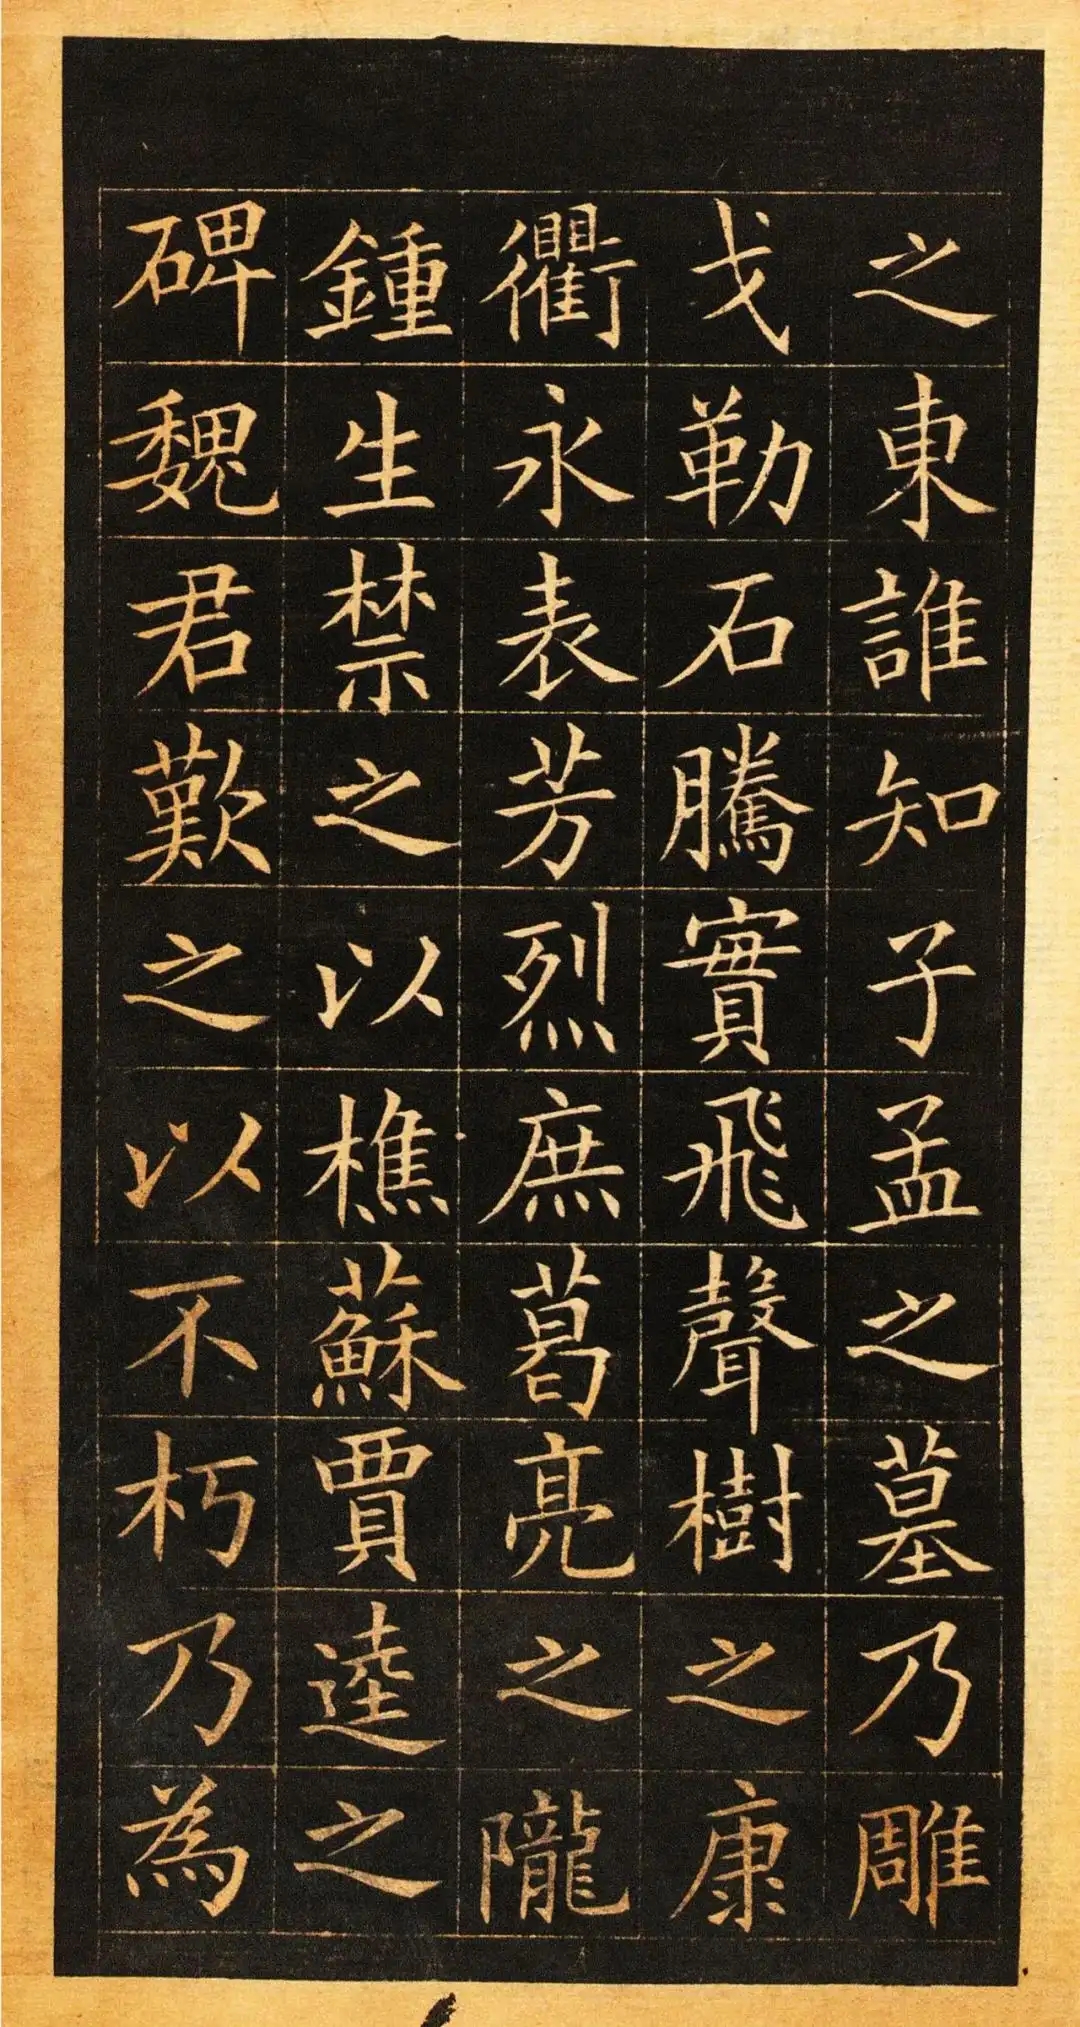 之東誰知子孟之墓乃雕
戈勒石騰實飛聲樹之康
衢永表芳烈庶葛亮之隴
鍾生禁之以樵蘇賈逵之
碑魏君歎之以不朽乃為